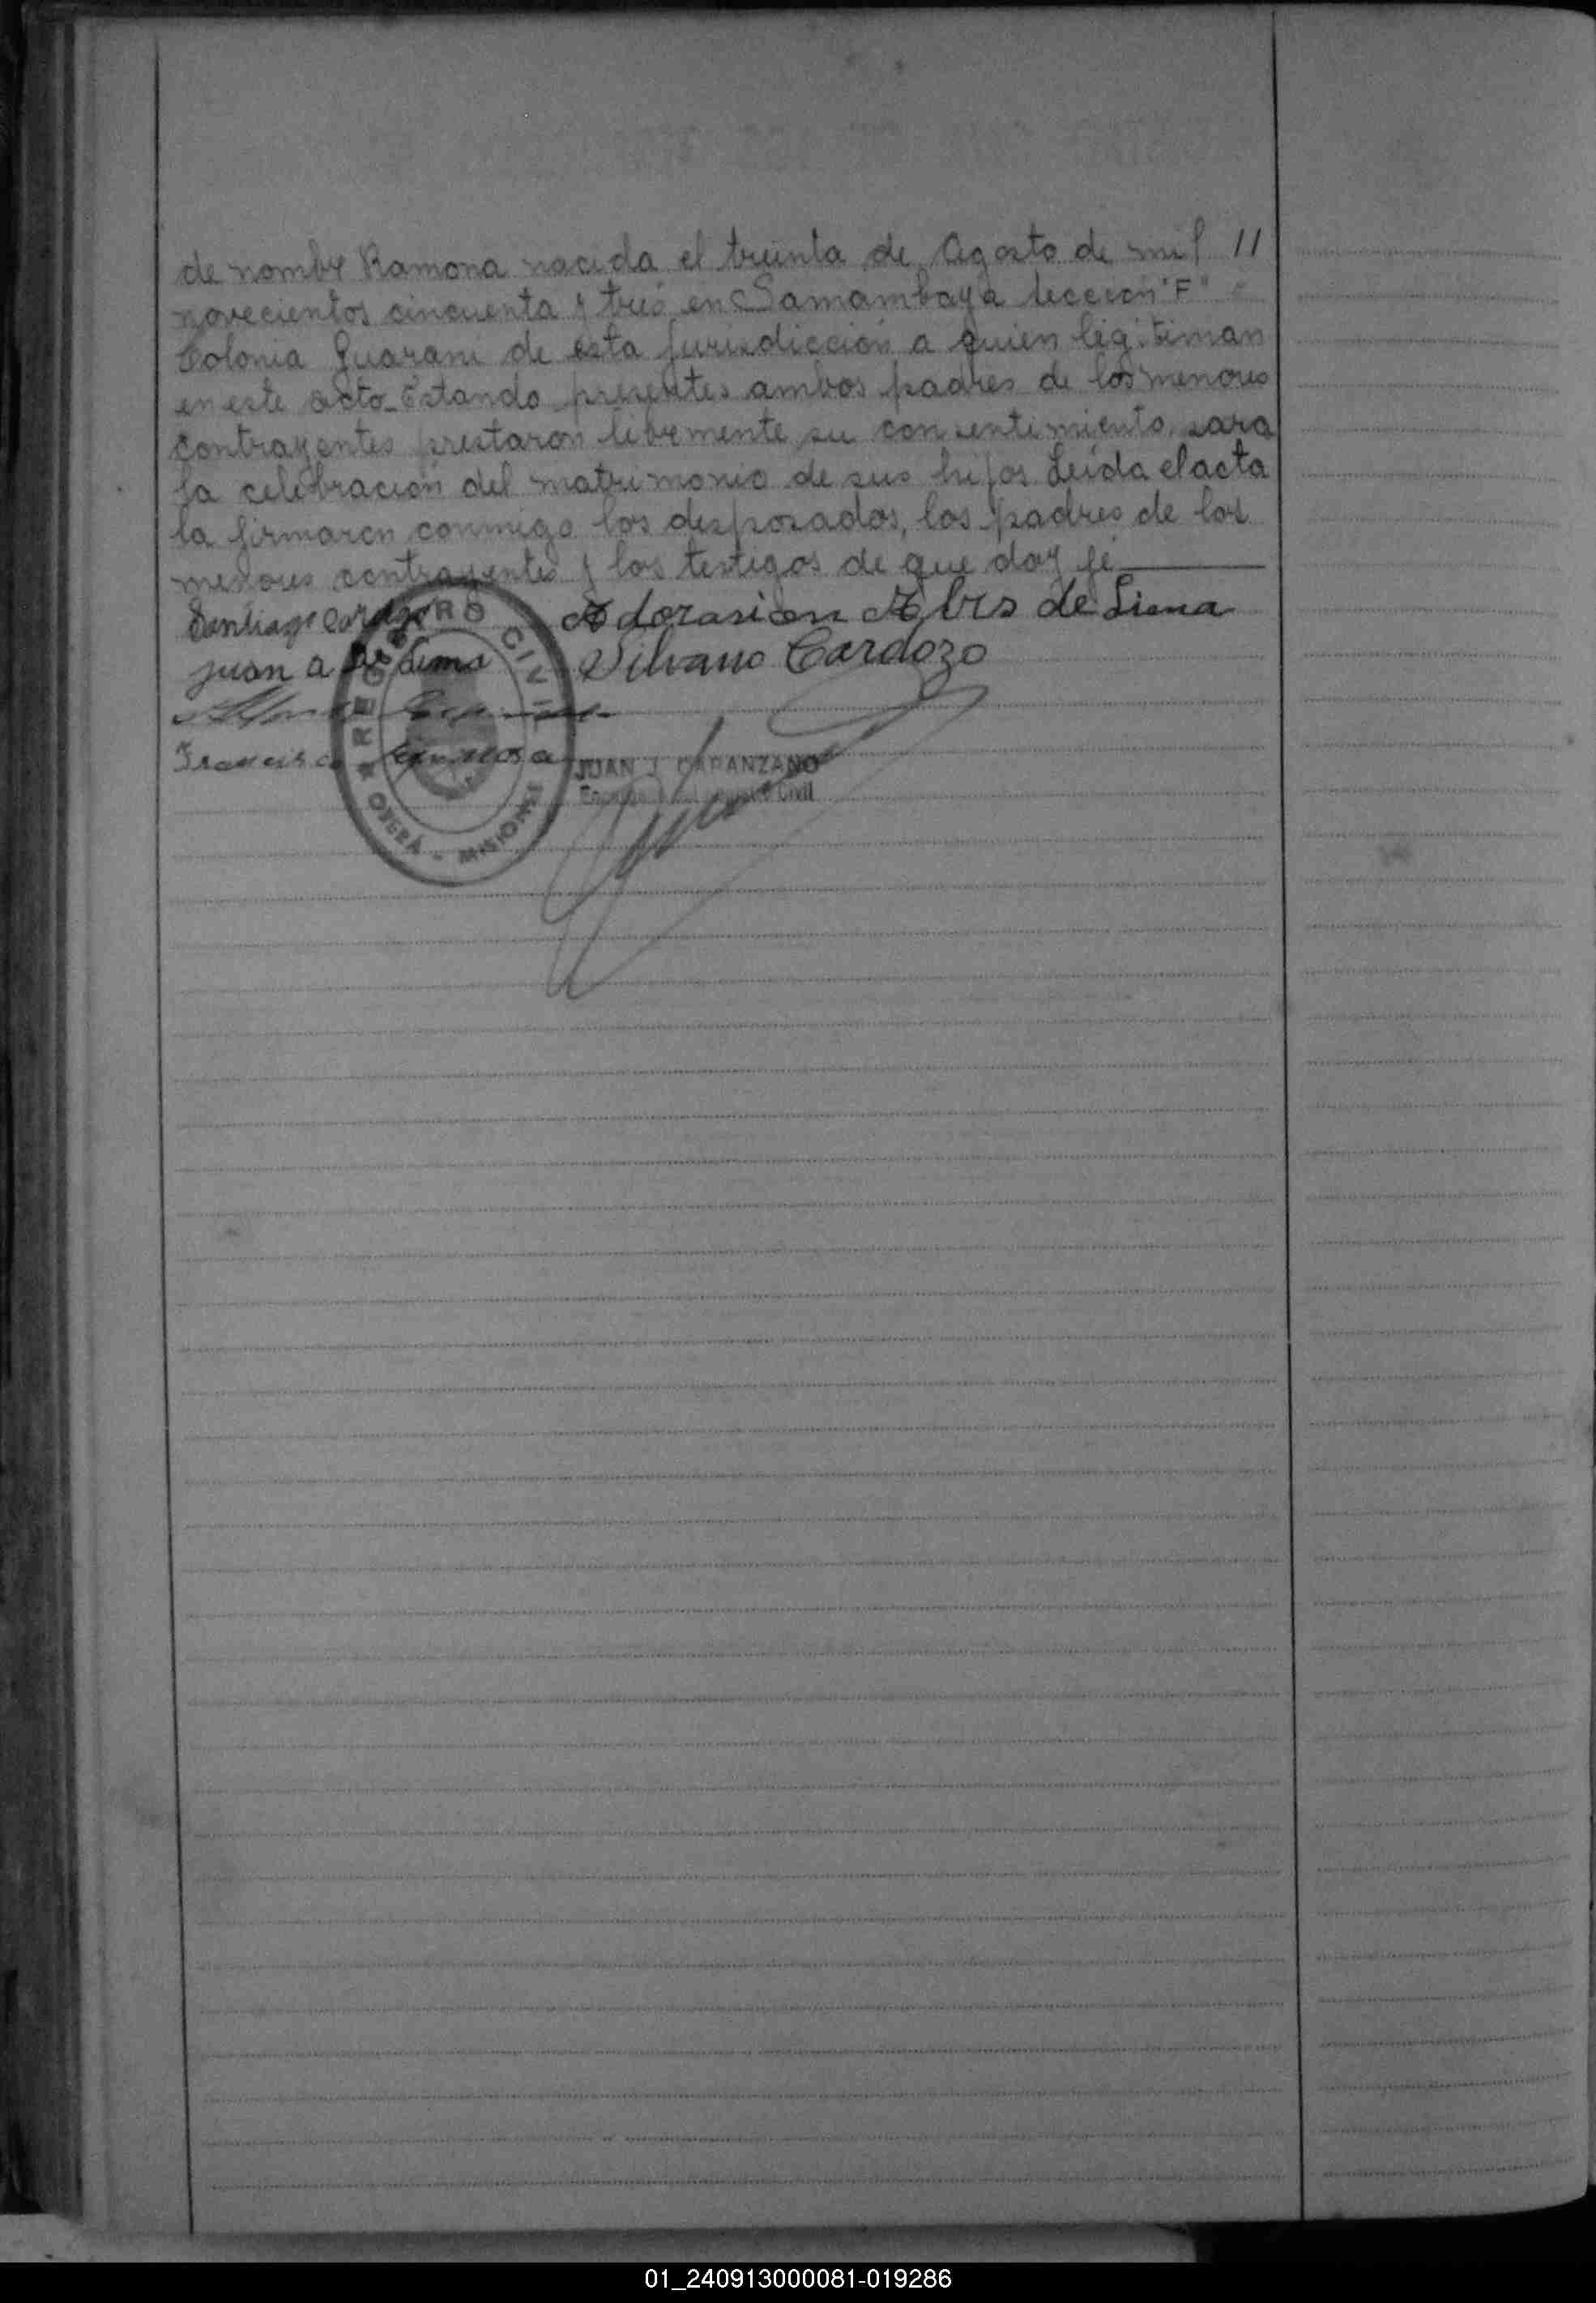 de nombre Ramona nacida el treinta de Agosto de mil 11
novecientos cincuenta y tres en Samambaya Sección "F"
Colonia Guarani de esta jurisdicción a quien legitiman
en este acto. Estando presentes ambos padres de los menores
contrayentes prestaron libremente su consentimiento para
la celebración del matrimonio de sus hijos Leida el acta
la firmaron conmigo los desposados, los padres de los
menores contrayentes y los testigos de que doy fé
Santiago Cardozo Adorasion Alvrs de Lima
juan a de Lima Silvano Cardozo
Francisco Espinosa
JUAN J. CARANZANO
Registro Civil
REGISTRO CIVIL
OBERÁ - MISIONES
01_240913000081-019286